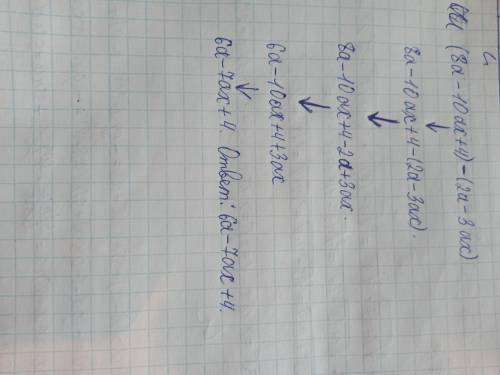 (8a-10ax+4)-(2a-3ax)
8a-10ax+4-(2a-3ax).
8a-10ax+4-2a+3ax.
6a-10ax+4+3ax
6a-7ax+4. Ответ: 6a-7ax+4.